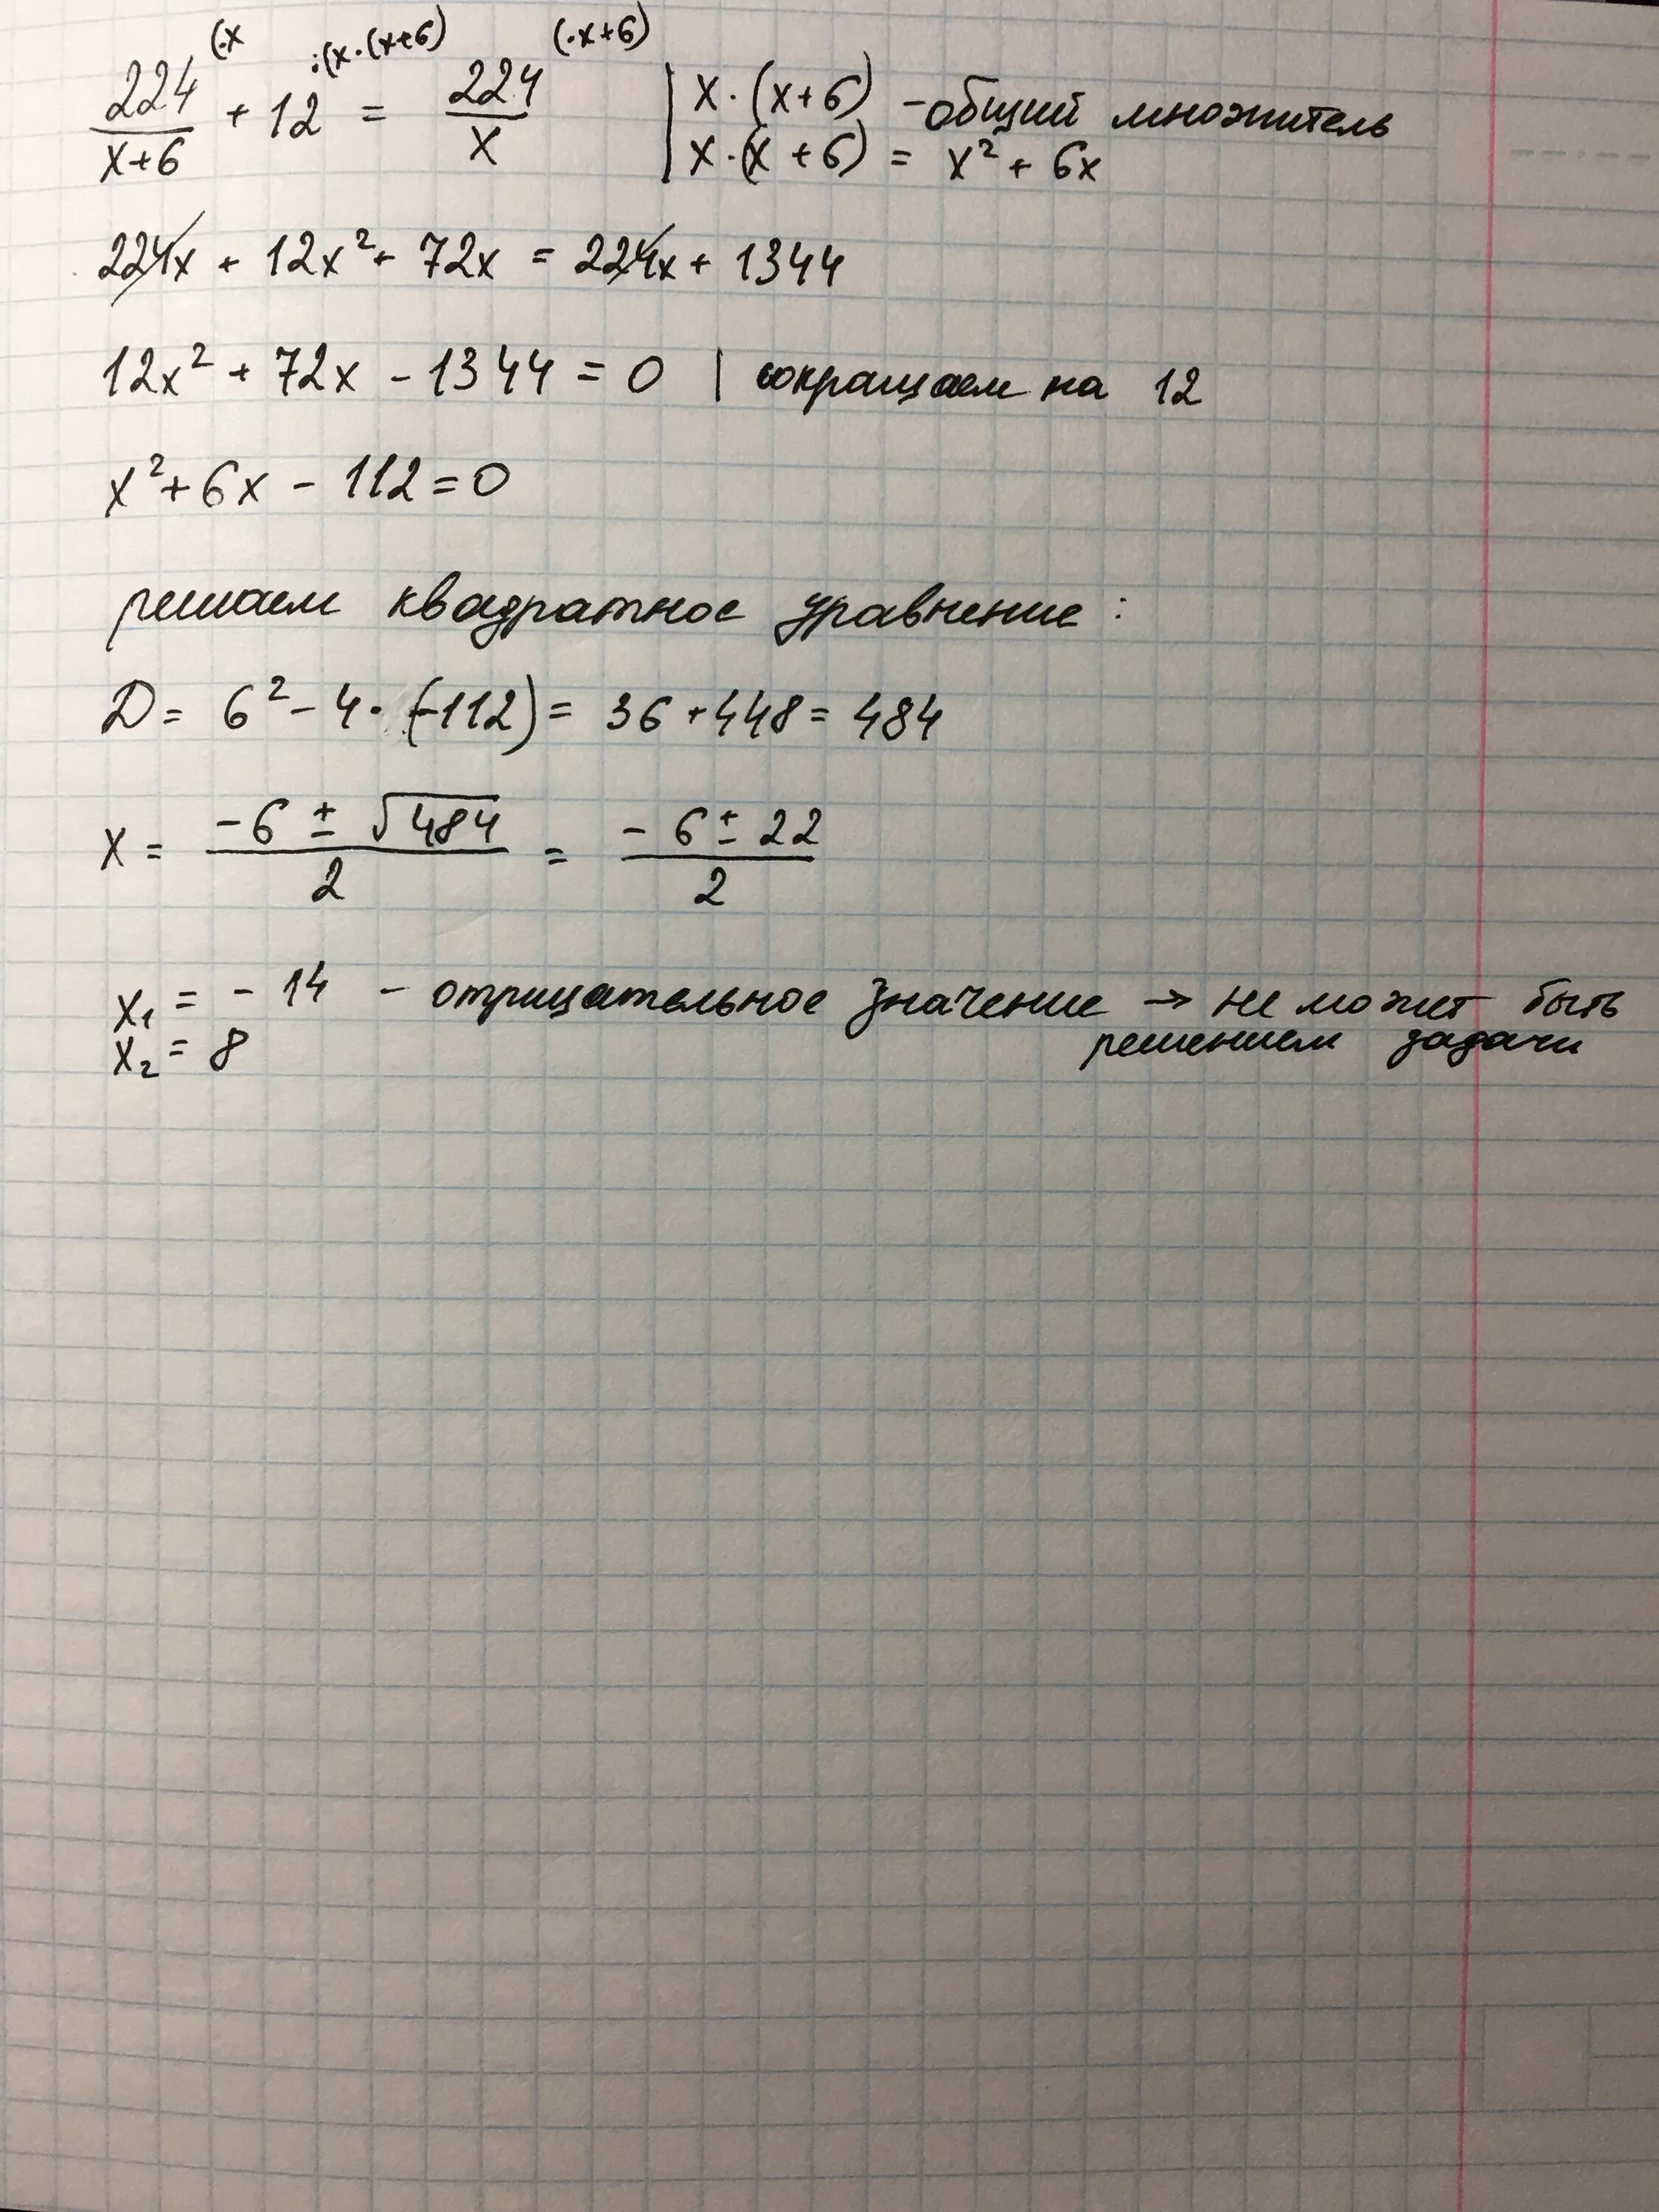 224/(x+6) (·x + 12 :(x·(x+6) = 224/x (·x+6) | x·(x+6) - общий множитель
| x·(x+6) = x² + 6x
224x + 12x² + 72x = 224x + 1344
12x² + 72x - 1344 = 0 | сокращаем на 12
x² + 6x - 112 = 0
решаем квадратное уравнение:
D = 6² - 4·(-112) = 36 + 448 = 484
x = (-6 ± √484)/2 = (-6 ± 22)/2
x₁ = -14 - отрицательное значение → не может быть
решением задачи
x₂ = 8